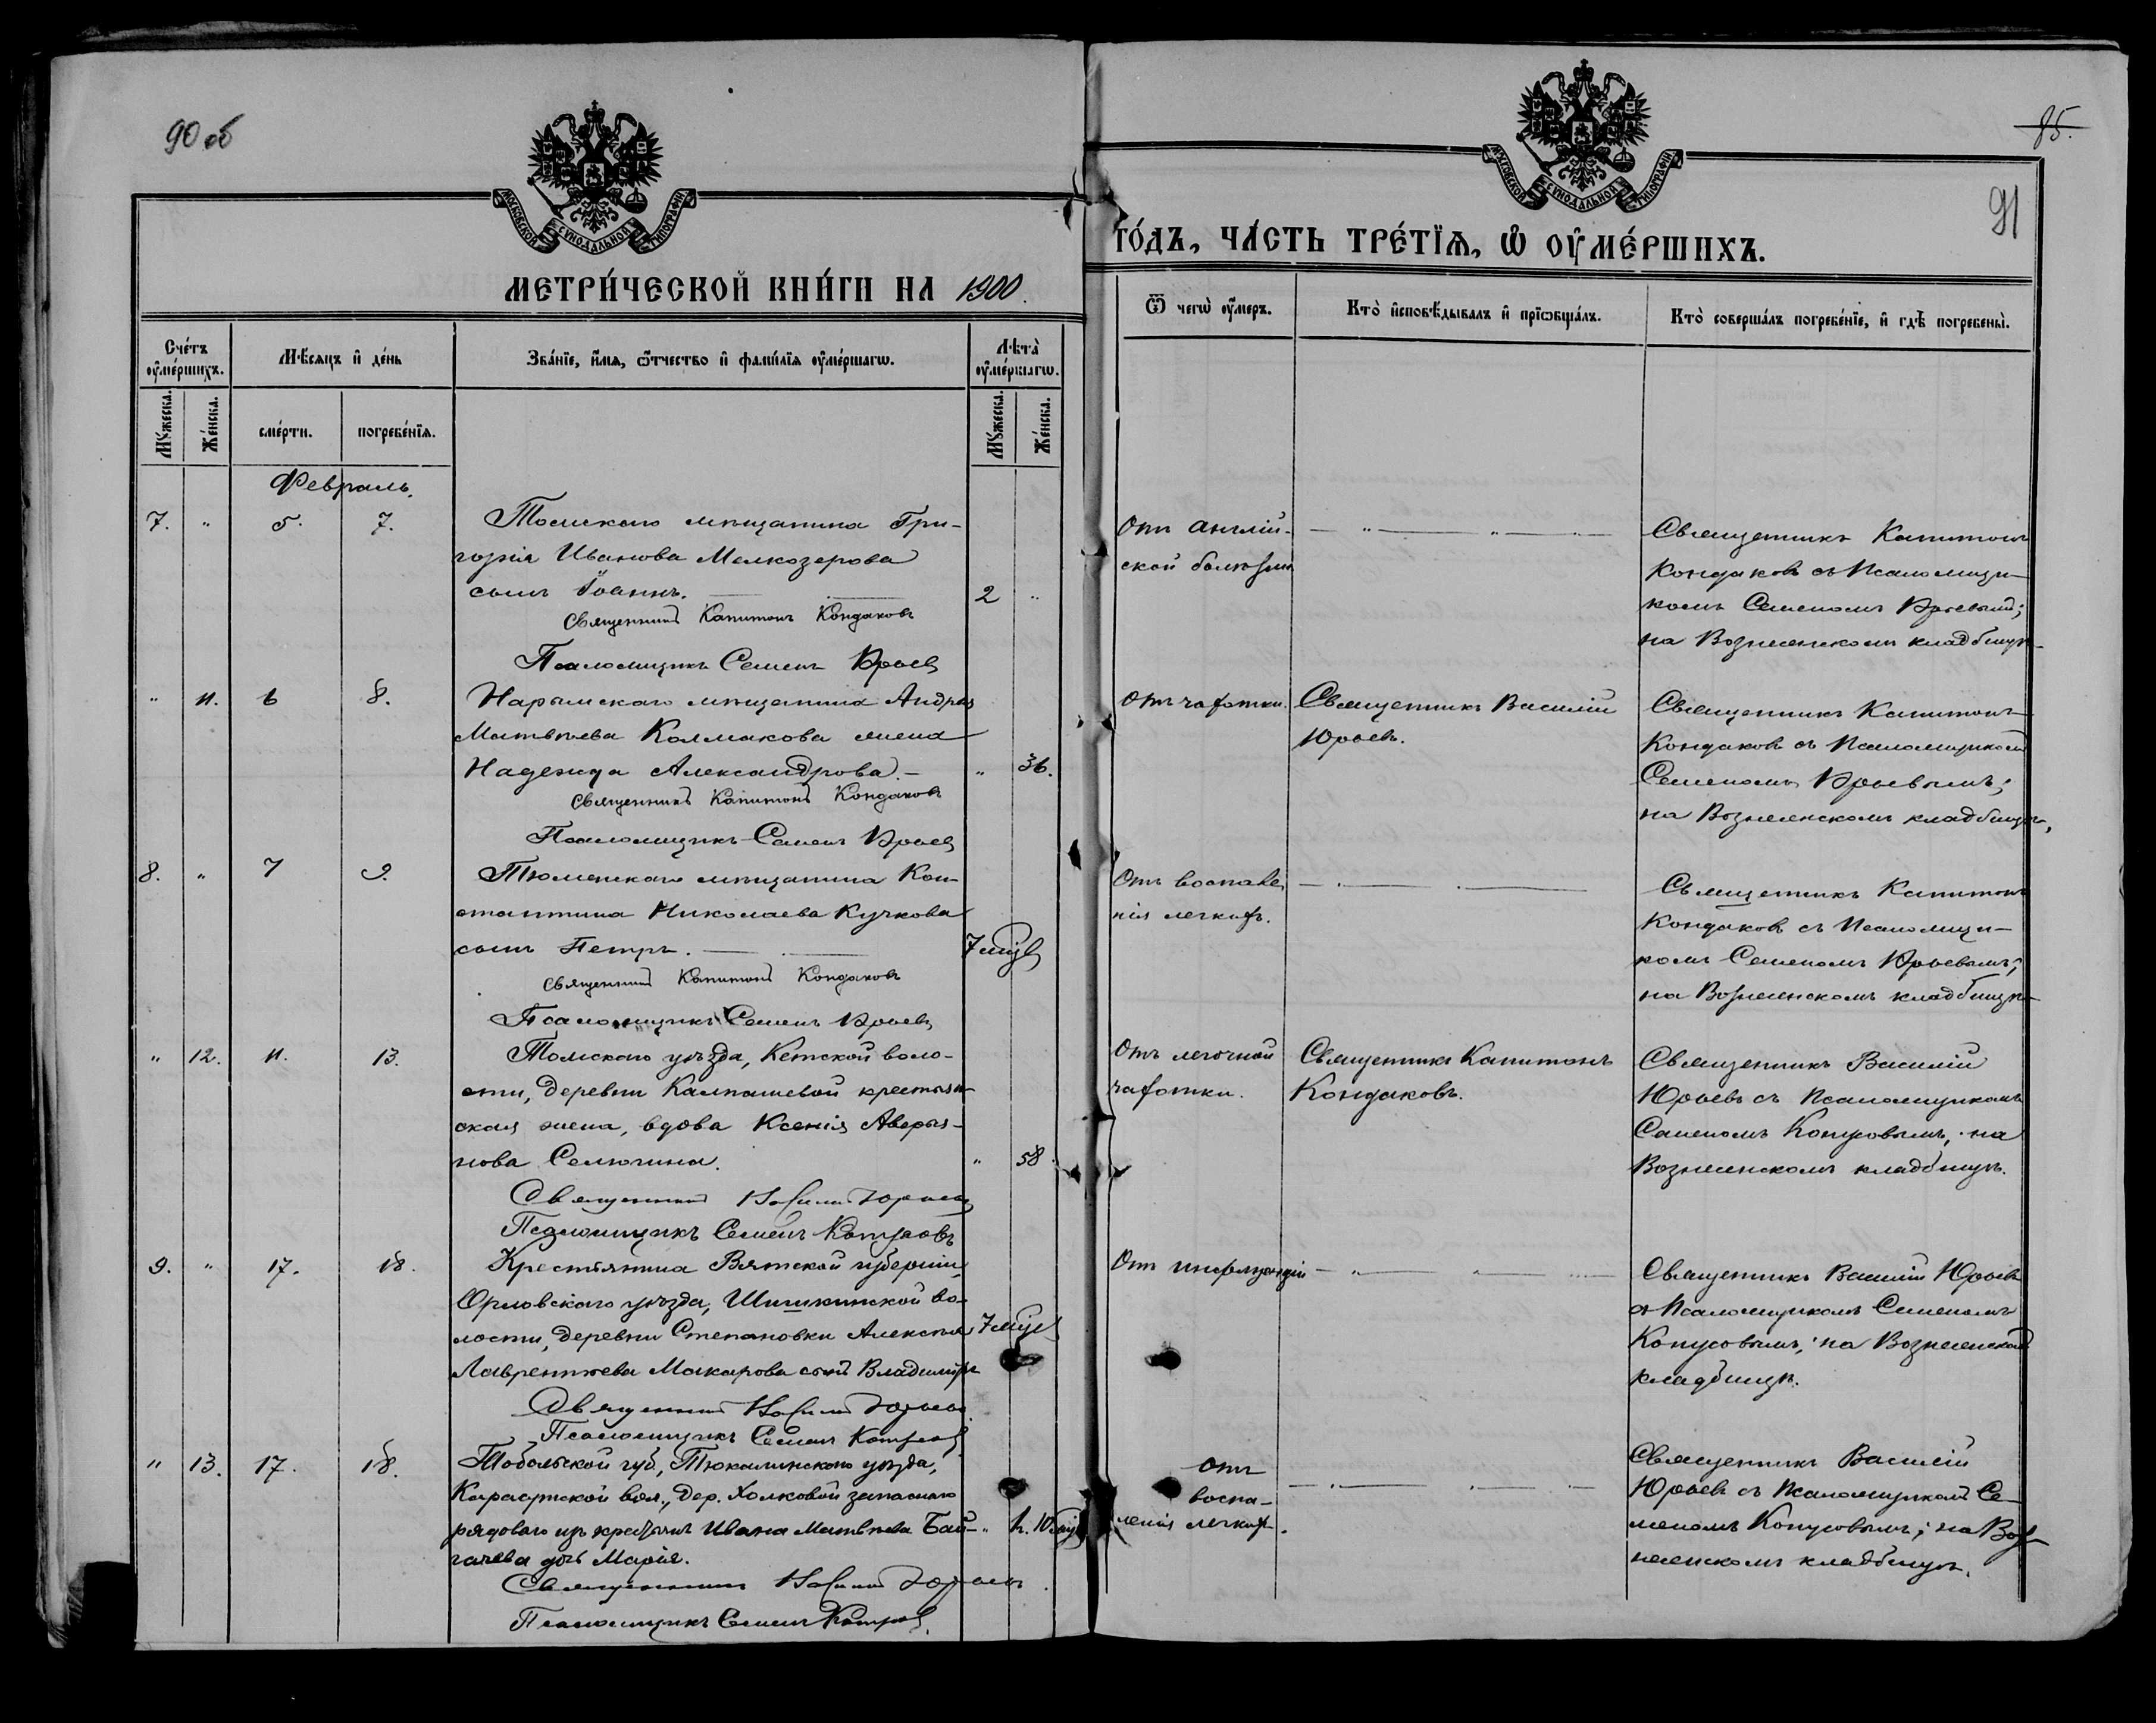 90 об
МОСКОВСКОЙ СѴНОДАЛЬНОЙ ТИПОГРАФІИ
МЕТРИ́ЧЕСКОЙ КНИ́ГИ НА 1900.
Сче́тъ ᲂу҆ме́ршихъ.
Мѣ́сяцъ и҆ де́нь
Зва́нїе, и҆́мя, ѻ҆́тчество и҆ фами́лїя ᲂу҆ме́ршагѡ.
Лѣта̀ ᲂу҆ме́ршагѡ.
Мꙋ́жеска.
Же́нска.
сме́рти.
погребе́нїѧ.
Мꙋ́жеска.
Же́нска.
Февраль.
7. " 5. 7.
Томскаго мѣщанина Гри-
горія Иванова Мелкозерова
сынъ Іоаннъ. 2 "
Священникъ Капитонъ Кондаковъ
Псаломщикъ Семенъ
" 11. 6 8.
Нарымскаго мѣщанина Андрея
Матвѣева Колмакова жена
Надежда Александрова. " 36.
Священникъ Капитонъ Кондаковъ
Псаломщикъ Семенъ
8. " 7 9.
Тюменскаго мѣщанина Кон-
стантина Николаева Кучкова
сынъ Петръ. 7 мцв
Священникъ Капитонъ Кондаковъ
Псаломщикъ Семенъ
" 12. 11. 13.
Томскаго уѣзда, Кетской воло-
сти, деревни Калпашевой крестьян-
ская жена, вдова Ксенія Аверья-
нова Селючина. " 58.
Священникъ Василій Юрьевъ
Псаломщикъ Семенъ
9. " 17. 18.
Крестьянина Вятской губерніи,
Орловскаго уѣзда, Шишкинской во-
лости, деревни Степановки Алексѣя 7 мцв
Лаврентьева Макарова сынъ Владиміръ
Священникъ Василій Юрьевъ
Псаломщикъ Семенъ
" 13. 17. 18.
Тобольской губ., Тюкалинскаго уѣзда,
вол., дер. Холковой запаснаго
рядоваго изъ крестьянъ Ивана Матвѣева Бай- " 10 мцв
гачева дочь Марія.
Священникъ Василій Юрьевъ
Псаломщикъ Семенъ
85.
91
МОСКОВСКОЙ СѴНОДАЛЬНОЙ ТИПОГРАФІИ
ГО́ДЪ, ЧА́СТЬ ТРЕ́ТЇѦ, Ѡ҆ ОУ҆МЕ́РШИХЪ.
Ѿ чегѡ̀ ᲂу҆́меръ.
Кто̀ и҆сповѣ́дывалъ и҆ прїѡбща́лъ.
Кто̀ соверша́лъ погребе́нїе, и҆ гдѣ̀ погребены̀.
Отъ англій-
ской болѣзни
Священникъ Капитонъ
Кондаковъ съ Псаломщи-
комъ Семеномъ
на Вознесенскомъ кладбищѣ
Отъ чахотки.
Священникъ Василій
Юрьевъ.
Священникъ Капитонъ
Кондаковъ съ Псаломщикомъ
Семеномъ
на Вознесенскомъ кладбищѣ,
Отъ воспале-
нія легкихъ.
Священникъ Капитонъ
Кондаковъ съ Псаломщи-
комъ Семеномъ
на Вознесенскомъ кладбищѣ
Отъ легочной
чахотки.
Священникъ Капитонъ
Кондаковъ.
Священникъ Василій
Юрьевъ съ Псаломщикомъ
Семеномъ Копусовымъ, на
Вознесенскомъ кладбищѣ.
Отъ инфлуэнціи
Священникъ Василій Юрьевъ
съ Псаломщикомъ Семеномъ
Копусовымъ; на Вознесенскомъ
кладбищѣ.
Отъ
воспа-
ленія легкихъ.
Священникъ Василій
Юрьевъ съ Псаломщикомъ Се-
меномъ Копусовымъ; на Воз-
несенскомъ кладбищѣ.